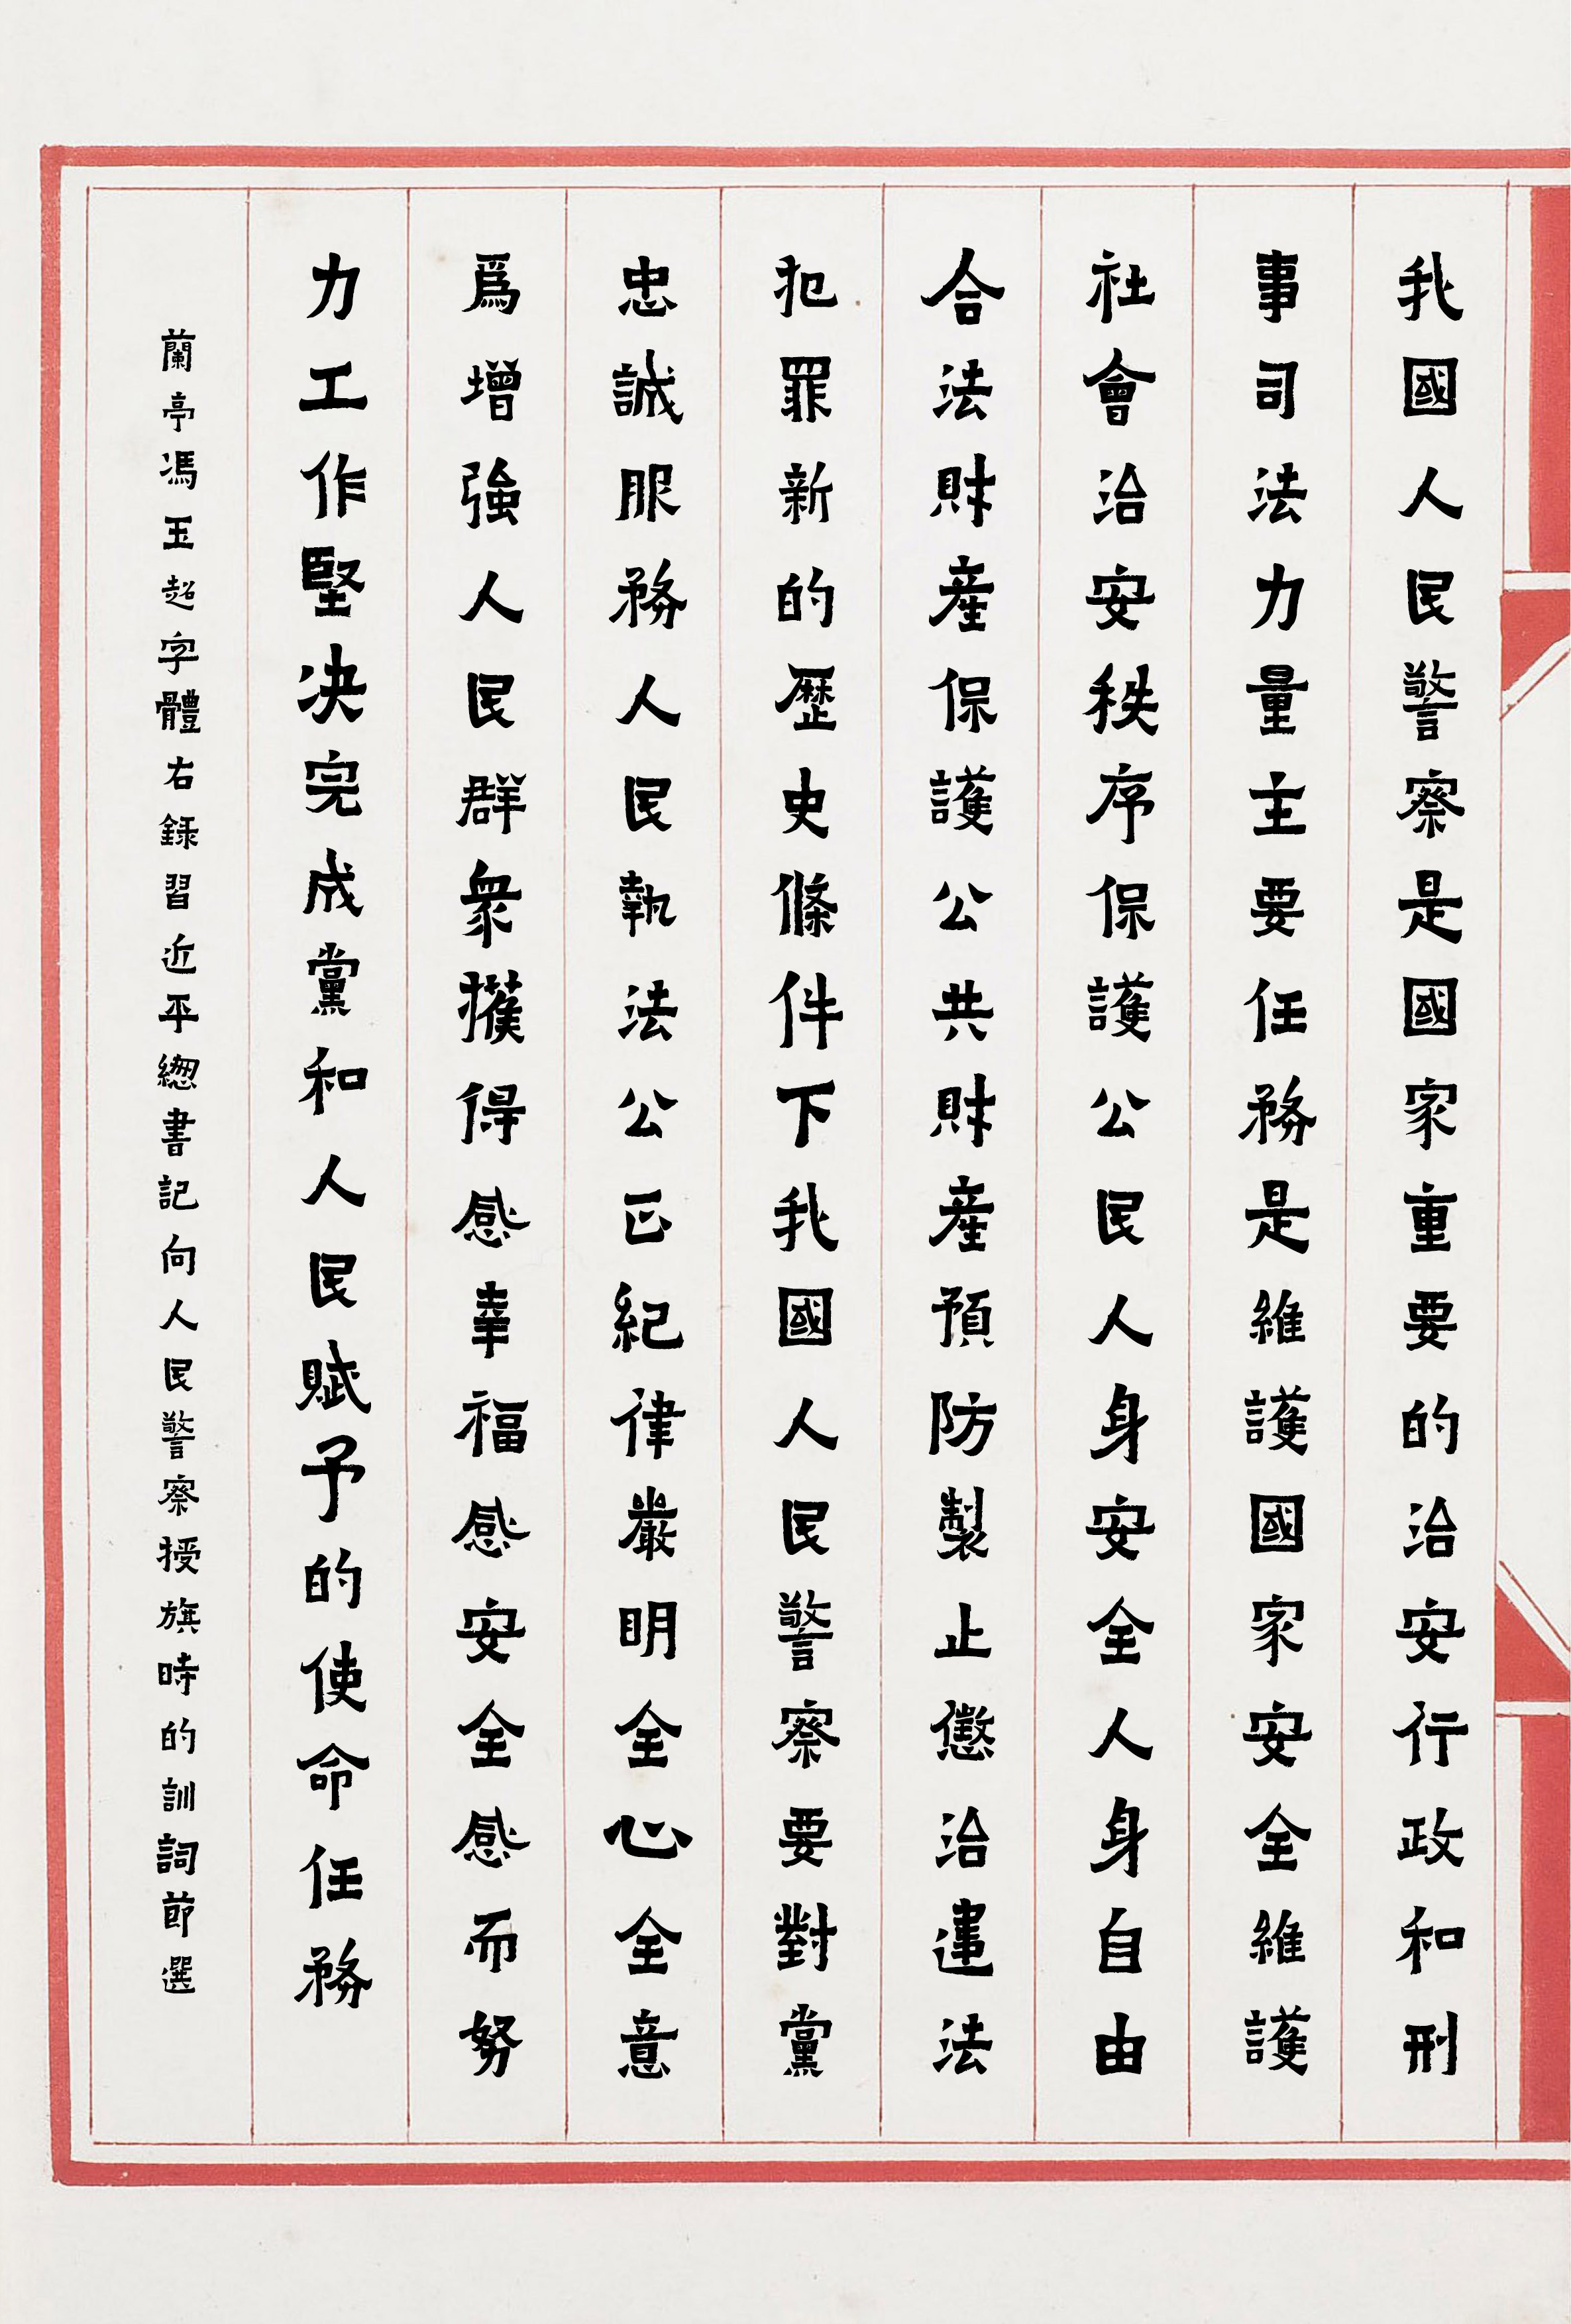 我國人民警察是國家重要的治安行政和刑
事司法力量主要任務是維護國家安全維護
社會治安秩序保護公民人身安全人身自由
合法財產保護公共財產預防製止懲治違法
犯罪新的歷史條件下我國人民警察要對黨
忠誠服務人民執法公正紀律嚴明全心全意
爲增強人民群衆獲得感幸福感安全感而努
力工作堅决完成黨和人民賦予的使命任務
蘭亭馮玉超字體右録習近平總書記向人民警察授旗時的訓詞節選